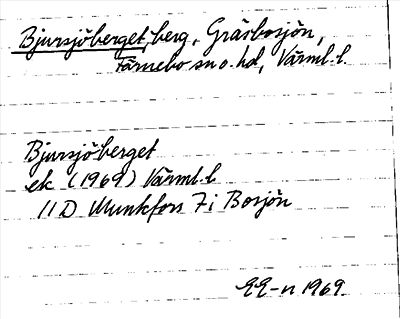 Bjursjöberget, berg, Gräsbosjön,
Färnebo sn o. hd, Värml. l.
Bjursjöberget
ek (1969) Värml. l
11D Munkfors 7i Bosjön
EE-n 1969.